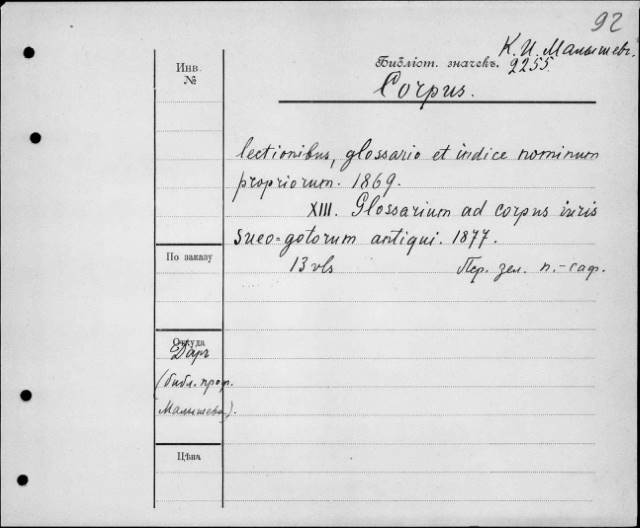 92
К. И. Малышев.
Библіот. значекъ. 2255.
Corpus.
Инв.
№
lectionibus, glossario et indice nominum
propriorum. 1869.
XIII. Glossarium ad corpus iuris
sueo-gotorum antiqui. 1877.
13 vls Пер. зел. п.-саф.
По заказу
Откуда
Даръ
(библ. проф.
Малышева).
Цѣна